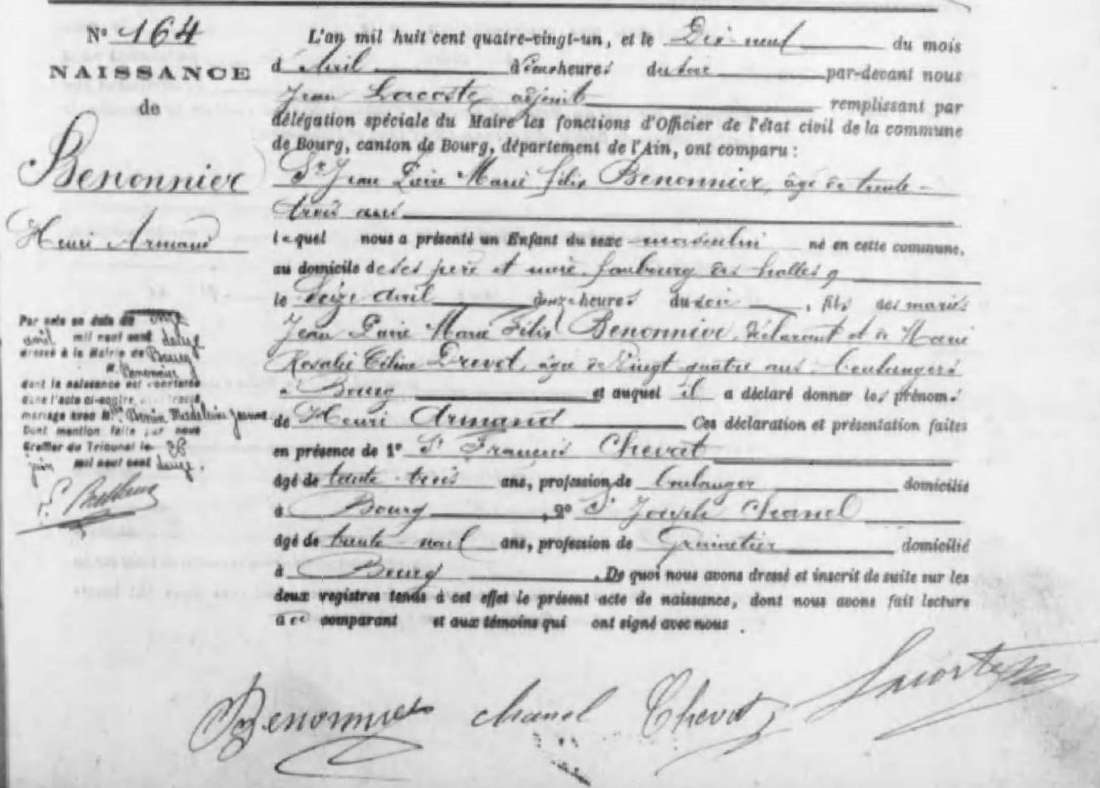 Nº 164
NAISSANCE
de
Benonnier
Henri Armand
L'an mil huit cent quatre-vingt-un, et le Dix neuf du mois
d'Avril à deux heures du soir par-devant nous
Jean Lacoste, adjoint remplissant par
délégation spéciale du Maire les fonctions d'Officier de l'état civil de la commune
de Bourg, canton de Bourg, département de l'Ain, ont comparu :
Sr Jean Marie Félix Benonnier, âgé de trente-
trois ans
lequel nous a présenté un Enfant du sexe masculin né en cette commune,
au domicile de ses père et mère, faubourg des halles
le seize avril à onze heures du soir, fils des mariés
Jean Marie Félix Benonnier, déclarant et de Marie
Rosalie Prevot, âgée de vingt quatre ans, boulangers
à Bourg et auquel il a déclaré donner les prénoms
de Henri Armand Ces déclaration et présentation faites
en présence de 1º Sr François Chevat
âgé de trente-trois ans, profession de boulanger domicilié
à Bourg, 2º Sr Joseph Chanel
âgé de trente-neuf ans, profession de Grainetier domicilié
à Bourg. De quoi nous avons dressé et inscrit de suite sur les
deux registres tenus à cet effet le présent acte de naissance, dont nous avons fait lecture
à ce comparant et aux témoins qui ont signé avec nous.
Par acte en date du onze
avril mil neuf cent douze
dressé à la Mairie de Bourg
M. Benonnier
dont la naissance est constatée
dans l'acte ci-contre, a contracté
mariage avec Mlle Madeleine Jeanne
Dont mention faite par nous
Greffier du Tribunal le 28
juin mil neuf cent douze.
Benonnier Chanel Chevat Lacoste